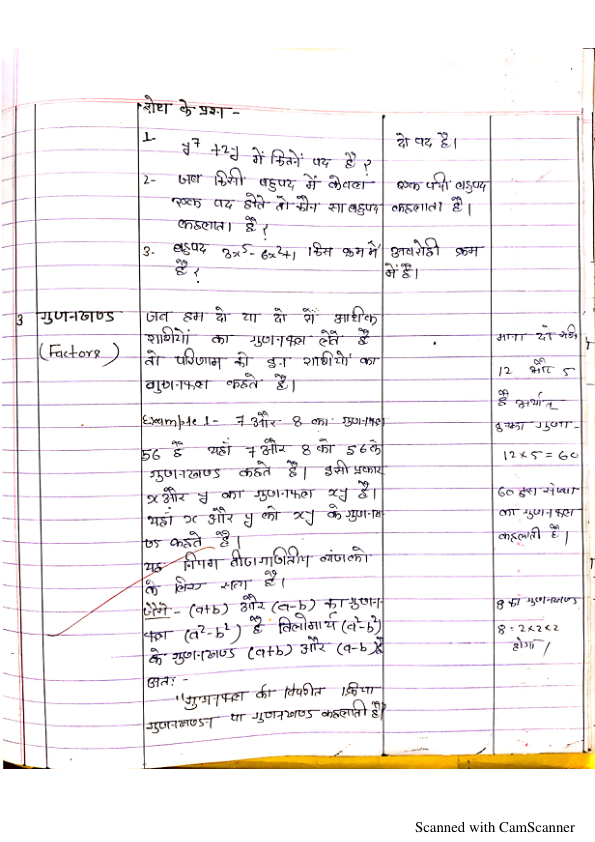 बोध के प्रश्न -
1- y⁷ + 2y में कितने पद है ?
दो पद है।
2- जब किसी बहुपद में केवल
एक पद होते तो कौन सा बहुपद
कहलाता है ?
एक पदी बहुपद
कहलाता है।
3. बहुपद 3x⁵ - 6x²+1 किस क्रम में
है ?
अवरोही क्रम
में है।
3 गुणनखण्ड
(Factors)
जब हम दो या दो से अधिक
राशियों का गुणनफल लेते है
तो परिणाम को इन राशियों का
गुणनफल कहते है।
Example 1- 7 और 8 का गुणनफल
56 है यहाँ 7 और 8 को 56 के
गुणनखण्ड कहते है। इसी प्रकार
x और y का गुणनफल xy है।
यहाँ x और y को xy के गुणनख-
ण्ड कहते है।
यह नियम बीजगणितीय व्यंजको
के लिए सत्य है।
जैसे - (a+b) और (a-b) का गुणन-
फल (a²-b²) है विलोमार्थ (a²-b²)
के गुणनखण्ड (a+b) और (a-b) है
अतः -
"गुणनफल की विपरीत क्रिया
गुणनखण्डन या गुणनखण्ड कहलाती है।
माना दो
12 और 5
है अर्थात्
इनका गुणा -
12 × 5 = 60
60 इस संख्या
का गुणनफल
कहलाती है।
8 का गुणनखण्ड
8 = 2×2×2
होगा।
Scanned with CamScanner